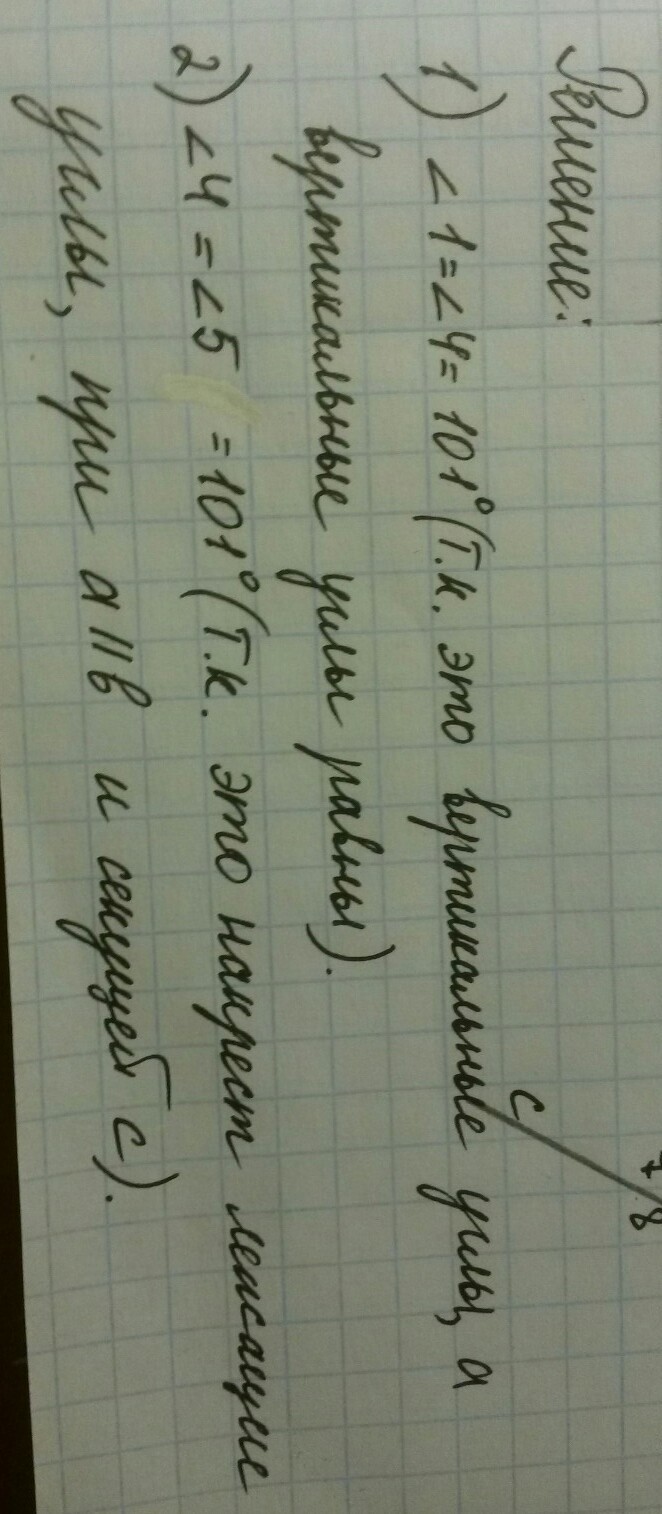 Решение:
1) <1=<4= 101° (Т.к. это вертикальные углы, а
вертикальные углы равны).
2) <4 = <5 = 101° (Т.к. это накрест лежащие
углы, при a || в и секущей с).
с
7
8